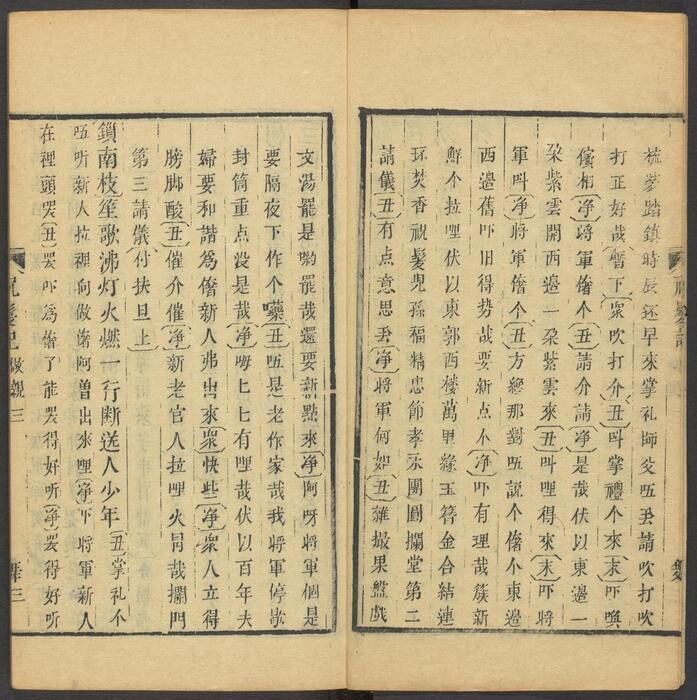 梳夢踏鎮時辰還早來掌礼師父㕶𠀾請吹打吹
打正好哉〔暫下〕衆吹打介〔丑〕呌掌禮个來〔末〕吓喚
儐相〔净〕將軍偺个〔丑〕請介請〔净〕是哉伏以東邉一
朶紫雲開西邉一朶紫雲來〔丑〕呌哩得來〔末〕吓將
軍呌〔净〕將軍偺个〔丑〕方纔那對㕶説个偺个東邉
西邉舊吓旧得势哉要新点个〔净〕吓有理哉簇新
鮮个拉哩伏以東郭西楼萬里緣玉簪金合結連
环焚香祝髪兒孫福精忠節孝永團圓攔堂第二
請儀〔丑〕有点意思𠀾〔净〕將軍何如〔丑〕雜撮果盤戯
文湯罷是喲罷哉還要新點來〔净〕阿呀將軍個是
要隔夜下作个𠿒〔丑〕㕶是老作家哉我將軍停歇
封筒重点没是哉〔净〕嗨匕匕有哩哉伏以百年夫
婦要和諧為偺新人弗出來〔衆〕快些〔净〕衆人立得
膀脚酸〔丑〕催介催〔净〕新老官人拉哩火冐哉攔門
第三請儀〔付扶旦上〕
鎖南枝笙歌沸灯火燃一行断送人少年〔丑〕掌礼个
㕶听新人拉裡向做偺阿曽出來哩〔净〕吓將軍新人
在裡頭哭〔丑〕哭吓為偺了能哭得好听〔净〕哭得好听
祝髪記
做親
三